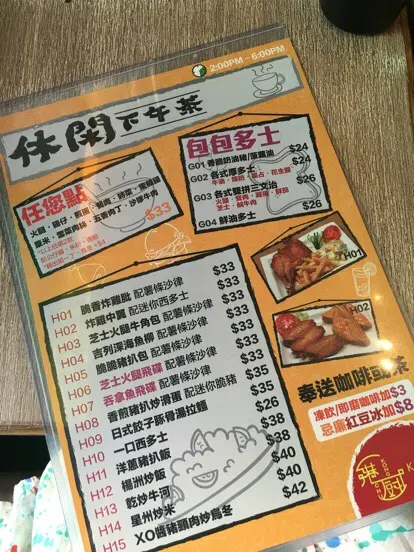 2:00PM - 6:00PM
休閒下午茶
任您點
火腿、腸仔、煎蛋
粟米、雪菜肉絲、五香肉丁、沙嗲牛肉
$33
包包多士
G01 香脆奶油豬/菠蘿油 $24
G02 各式厚多士 $24
牛油、煉奶、花生醬
G03 各式雙拼三文治 $26
芝士、鹹牛肉
G04 鮮油多士 $26
H01 脆香炸雞肶 配薯條沙律 $33
H02 炸雞中翼 配迷你西多士 $33
H03 芝士火腿牛角包 配薯條沙律 $33
H04 吉列深海魚柳 配薯條沙律 $33
H05 脆脆豬扒包 配薯條沙律 $33
H06 芝士火腿飛碟 配薯條沙律 $33
H07 吞拿魚飛碟 配薯條沙律 $33
H08 香煎豬扒炒滑蛋 配迷你脆豬 $35
H09 日式餃子豚骨湯拉麵 $35
H10 一口西多士 $26
H11 洋蔥豬扒飯 $38
H12 楊洲炒飯 $38
H13 乾炒牛河 $40
H14 星州炒米 $40
H15 XO醬豬頸肉炒烏冬 $42
H01
H02
奉送咖啡或茶
凍飲/即磨咖啡加$3
忌廉紅豆冰加$8
港厨